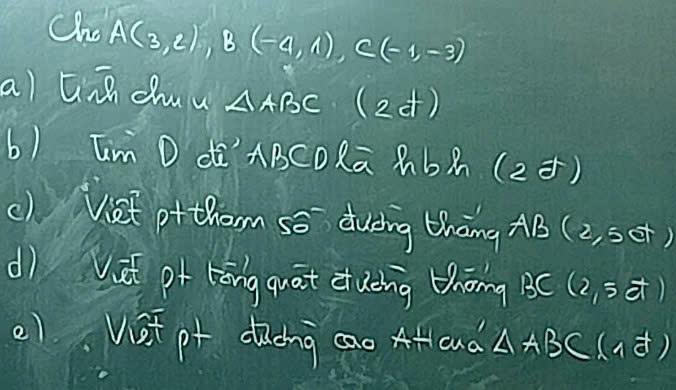 Cho A(3,2), B(-4,1), C(-1,-3)
a) tính chu vi △ABC. (2đ)
b) Tìm D để ABCD là hbh. (2đ)
c) Viết pt tham số đường thẳng AB (2,5đ)
d) Viết pt tổng quát đường thẳng BC (2,5đ)
e) Viết pt đường cao AH của △ABC (1đ)